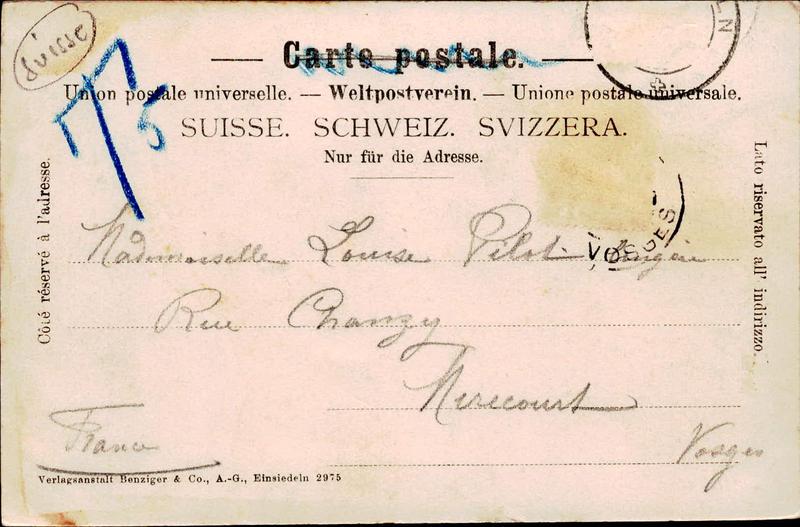 Suisse
Carte postale.
T 5
Union postale universelle. — Weltpostverein. — Unione postale universale.
SUISSE. SCHWEIZ. SVIZZERA.
Nur für die Adresse.
Côté réservé à l'adresse.
Lato riservato all' indirizzo.
LN
VOSGES
Mademoiselle Louise Pilot
Rue Chanzy
Mirecourt
Vosges
France
Verlagsanstalt Benziger & Co., A.-G., Einsiedeln 2975